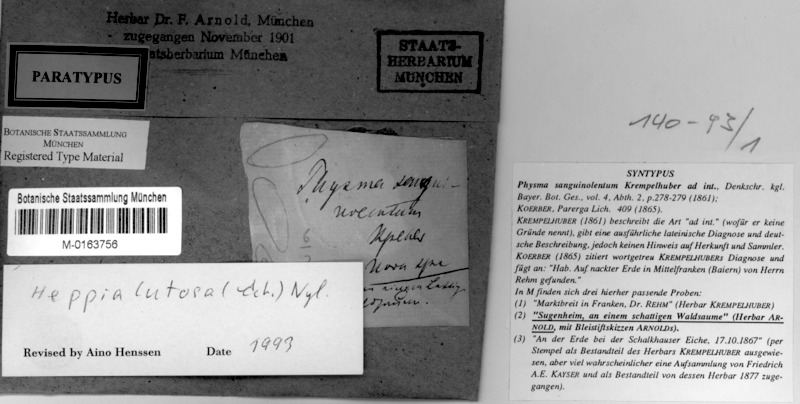 Herbar Dr. F. Arnold, München
zugegangen November 1901
atsherbarium München
STAATS-
HERBARIUM
MÜNCHEN
PARATYPUS
BOTANISCHE STAATSSAMMLUNG
MÜNCHEN
Registered Type Material
Botanische Staatssammlung München
M-0163756
Physma sangui-
nolentum
Nova spec
Heppia lutosa (Ach.) Nyl.
Revised by Aino Henssen Date 1993
140-93/1
SYNTYPUS
Physma sanguinolentum Krempelhuber ad int., Denkschr. kgl.
Bayer. Bot. Ges., vol. 4, Abth. 2, p.278-279 (1861);
KOERBER, Parerga Lich. 409 (1865).
KREMPELHUBER (1861) beschreibt die Art "ad int." (wofür er keine
Gründe nennt), gibt eine ausführliche lateinische Diagnose und deut-
sche Beschreibung, jedoch keinen Hinweis auf Herkunft und Sammler.
KOERBER (1865) zitiert wortgetreu KREMPELHUBERs Diagnose und
fügt an: "Hab. Auf nackter Erde in Mittelfranken (Baiern) von Herrn
Rehm gefunden."
In M finden sich drei hierher passende Proben:
(1) "Marktbreit in Franken, Dr. REHM" (Herbar KREMPELHUBER)
(2) "Sugenheim, an einem schattigen Waldsaume" (Herbar AR-
NOLD, mit Bleistiftskizzen ARNOLDs).
(3) "An der Erde bei der Schalkhauser Eiche, 17.10.1867" (per
Stempel als Bestandteil des Herbars KREMPELHUBER ausgewie-
sen, aber viel wahrscheinlicher eine Aufsammlung von Friedrich
A.E. KAYSER und als Bestandteil von dessen Herbar 1877 zuge-
gangen).